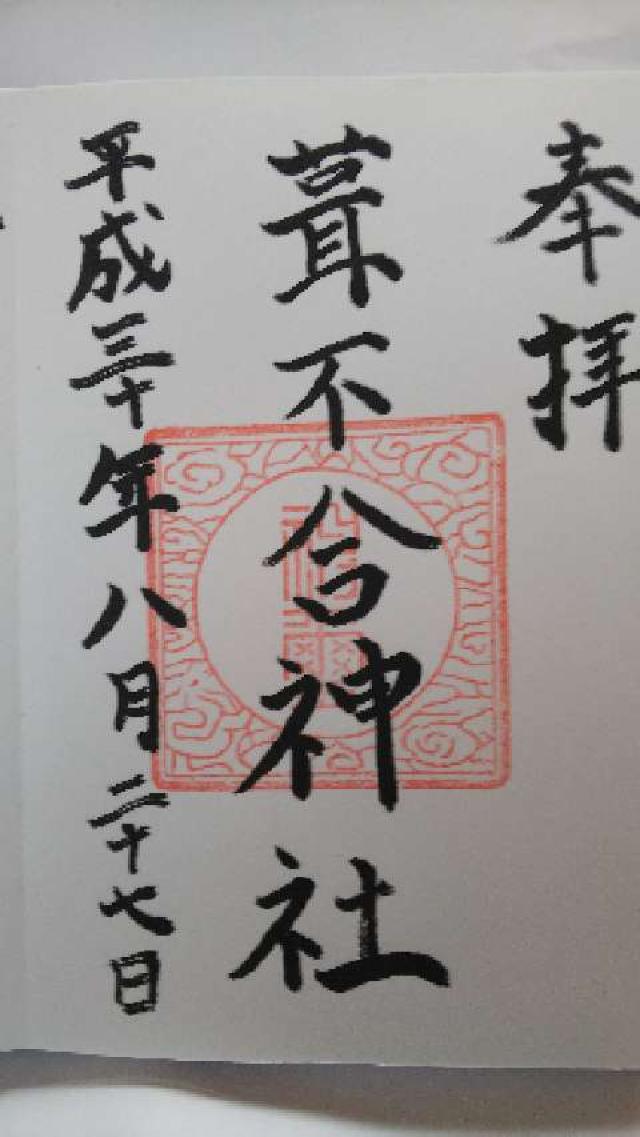 奉拝
葺不合神社
平成三十年八月二十七日